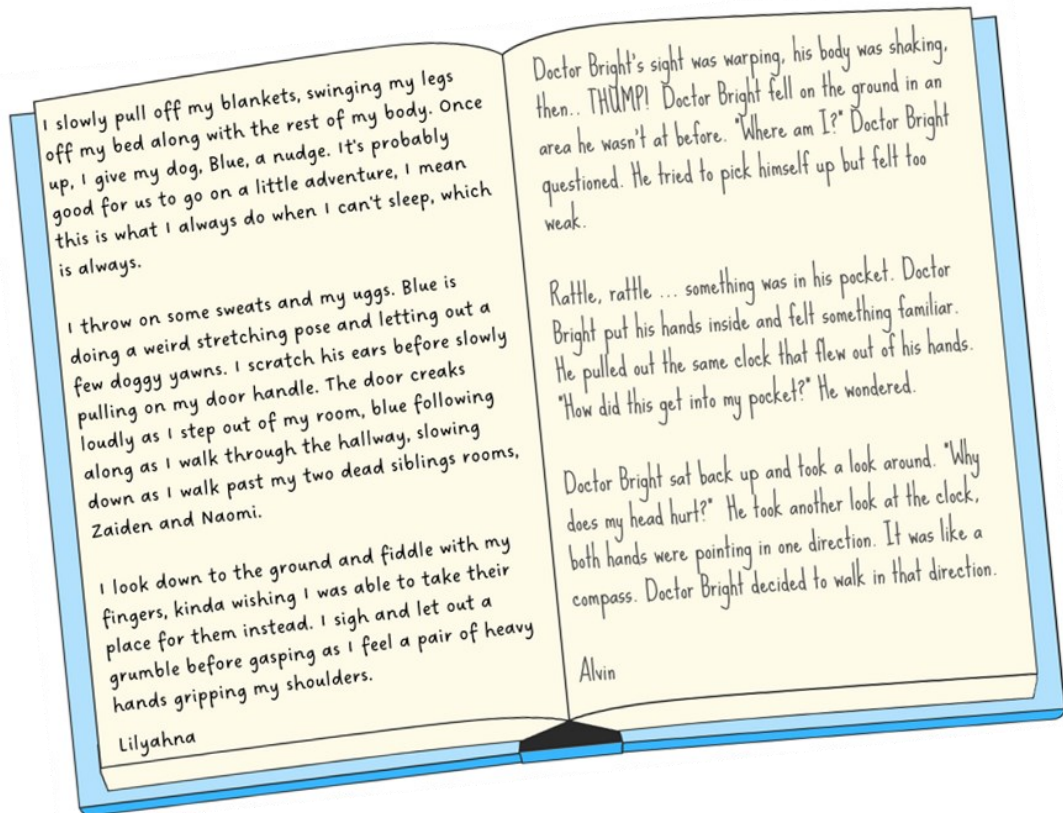 I slowly pull off my blankets, swinging my legs
off my bed along with the rest of my body. Once
up, I give my dog, Blue, a nudge. It's probably
good for us to go on a little adventure, I mean
this is what I always do when I can't sleep, which
is always.
I throw on some sweats and my uggs. Blue is
doing a weird stretching pose and letting out a
few doggy yawns. I scratch his ears before slowly
pulling on my door handle. The door creaks
loudly as I step out of my room, blue following
along as I walk through the hallway, slowing
down as I walk past my two dead siblings rooms,
Zaiden and Naomi.
I look down to the ground and fiddle with my
fingers, kinda wishing I was able to take their
place for them instead. I sigh and let out a
grumble before gasping as I feel a pair of heavy
hands gripping my shoulders.
Lilyahna
Doctor Bright's sight was warping, his body was shaking,
then.. THUMP! Doctor Bright fell on the ground in an
area he wasn't at before. "Where am I?" Doctor Bright
questioned. He tried to pick himself up but felt too
weak.
Rattle, rattle ... something was in his pocket. Doctor
Bright put his hands inside and felt something familiar.
He pulled out the same clock that flew out of his hands.
"How did this get into my pocket?" He wondered.
Doctor Bright sat back up and took a look around. "Why
does my head hurt?" He took another look at the clock,
both hands were pointing in one direction. It was like a
compass. Doctor Bright decided to walk in that direction.
Alvin